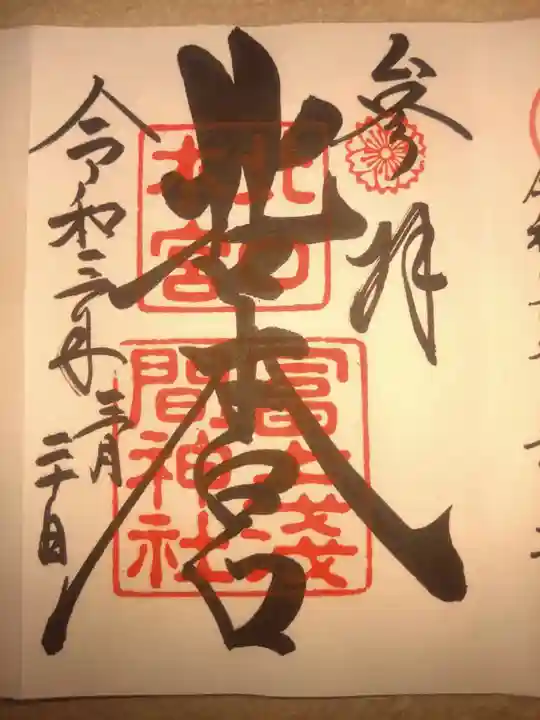 参拝
北口本宮
北口
本宮
冨士淺
間神社
令和三年三月二十日